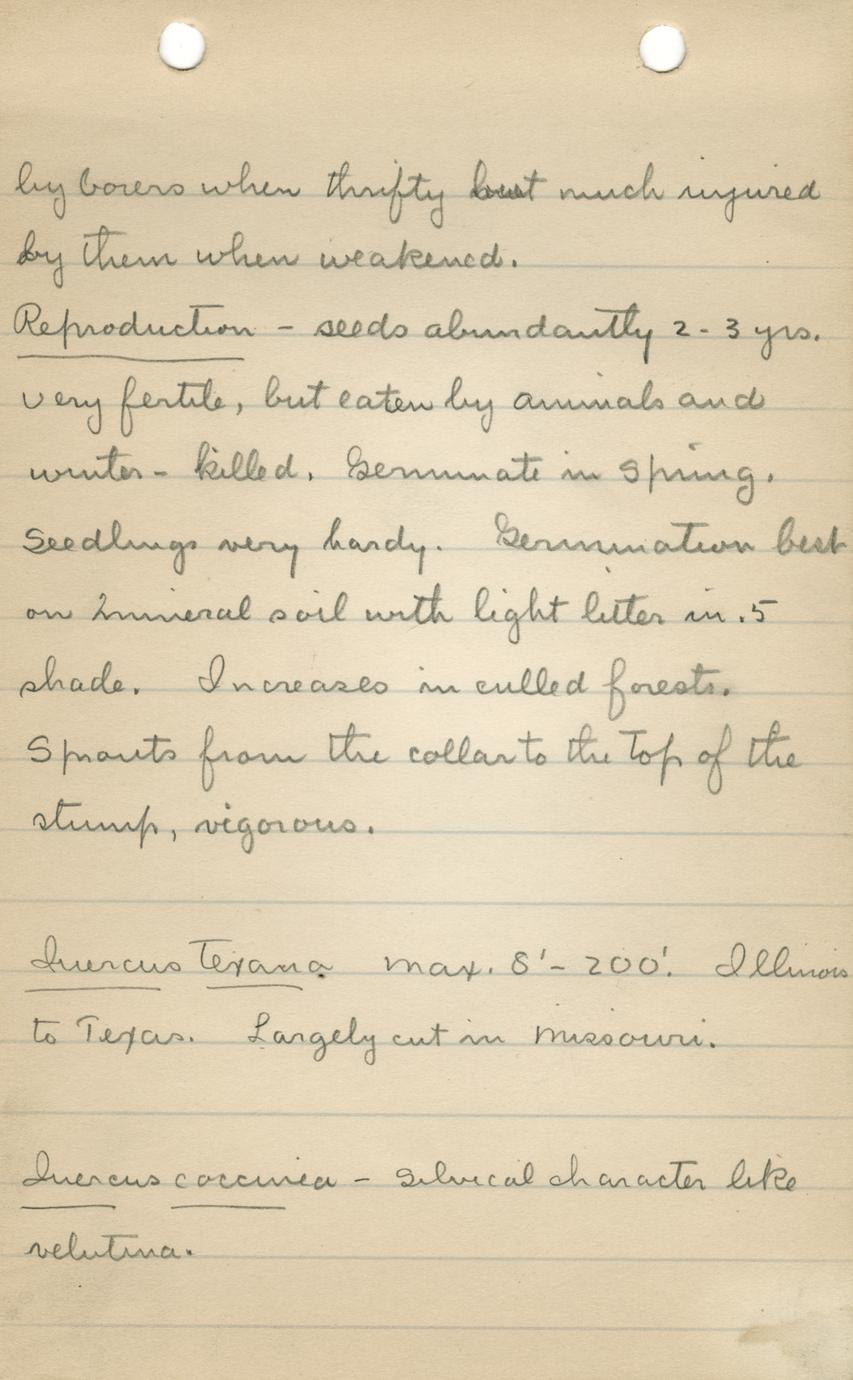 by borers when thrifty but much injured
by them when weakened.
Reproduction - seeds abundantly 2-3 yrs.
very fertile, but eaten by animals and
winter-killed. Germinate in Spring.
Seedlings very hardy. Germination best
on mineral soil with light litter in .5
shade. Increases in culled forests.
Sprouts from the collar to the top of the
stump, vigorous.
Quercus Texana max. 8'-200'. Illinois
to Texas. Largely cut in Missouri.
Quercus coccinea - silvical character like
velutina.